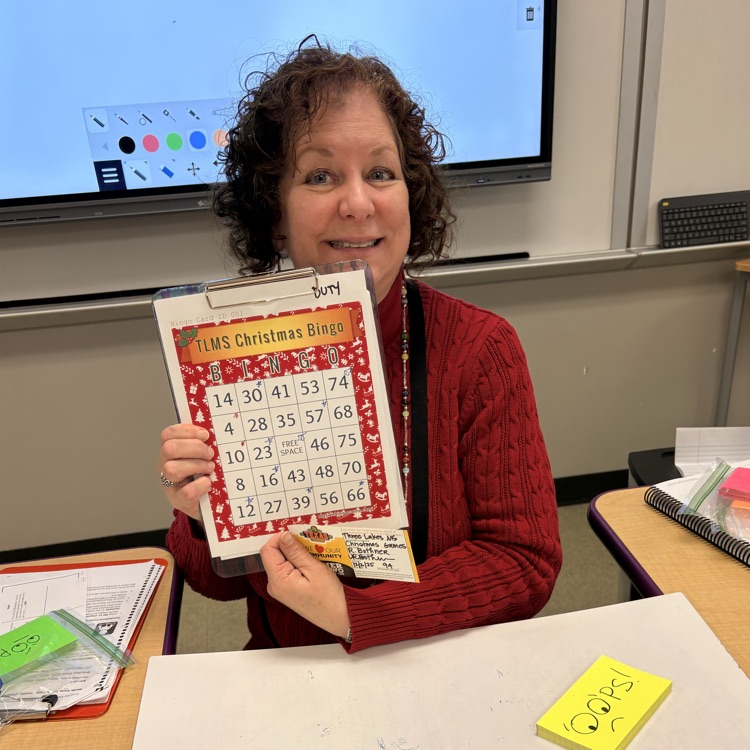 DUTY
Bingo Card ID 001
TLMS Christmas Bingo
B I N G O
14 30 41 53 74
4 28 35 57 68
10 23 FREE SPACE 46 75
8 16 43 48 70
12 27 39 56 66
OUR
COMMUNITY
Three Lakes MS
Christmas Games
R. Bothner
94
OOPS!